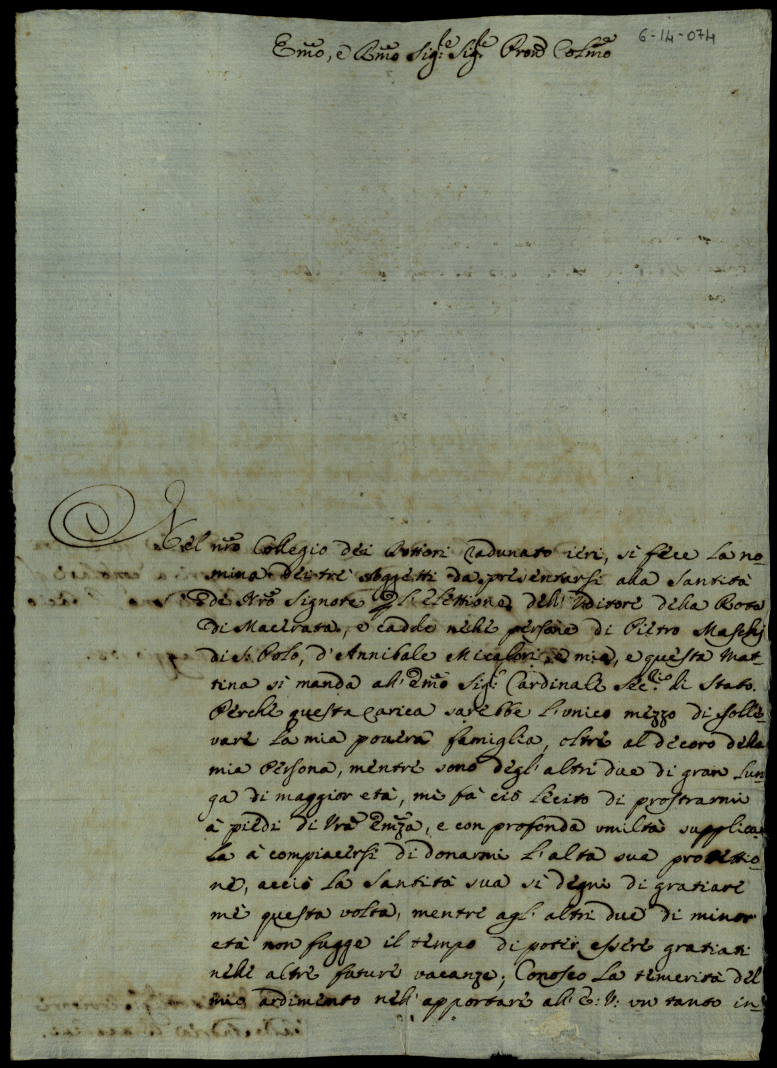 6-14-074
Em̃o, e Rm̃o Sig.re Sig.re Prõn Colm̃o
Nel nr̃o Collegio dei Dottori radunato ieri, si fece la no-
mina dei trè soggetti da presentarsi alla Santità
di Nr̃o Signore p l'elettione dell'Uditore della Rota
di Macerata, e cadde nelle persone di Pietro Maschi
di S. Polo, d'Annibale Micalori, e mia, e questa mat-
tina si manda all'Em̃o Sig.r Cardinale Seg.rio di Stato.
Perche questa carica sarebbe l'unico mezzo di solle-
vare la mia povera famiglia, oltre al decoro della
mia Persona, mentre sono degl'altri due di gran lun-
ga di maggior età, mi fà ciò lecito di prostrarmi
à piedi di Vr̃a Em̃za, e con profonda umiltà supplicar-
la à compiacersi di donarmi l'alta sua protettio-
ne, acciò la Santità sua si degni di gratiare
me questa volta, mentre agl'altri due di minor
età non fugge il tempo di poter essere gratiati
nelle altre future vacanze; Conosco la temerità del
mio ardimento nell'apportare all'E: V: un tanto in-